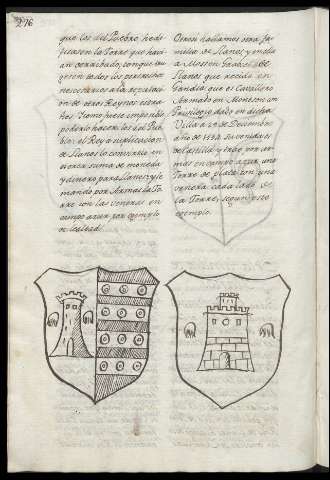 276
que los del Pueblo reedi
ficasen la Torre que havi
an derribado, con que tru
gesen todos los pertrechos
necesarios a la reparacion
de otros Reynos estra
ños. Y como fuese imposible
poderlo hacer los del Pue
blo; el Rey a suplicacion
de Llanos lo convirtio en
cierta suma de moneda
y dineros para Llanos, y le
mando por Armas la To
rre con las veneras en
campo azur por exemplo
de lealtad.
Otrosi hallamos otra fa
milia de Llanos, y en ella
a Mossen Gabriel de
Llanos que recide en
Gandia, que es Cavallero
Armado en Monzon con
Privilegio dado en dicha
Villa a 2 de Diciembre
año de 1534. Su venida es
de Castilla y trae por ar
mas en campo azur una
Torre de plata con una
venera cada lado de
la Torre, segun este
exemplo.